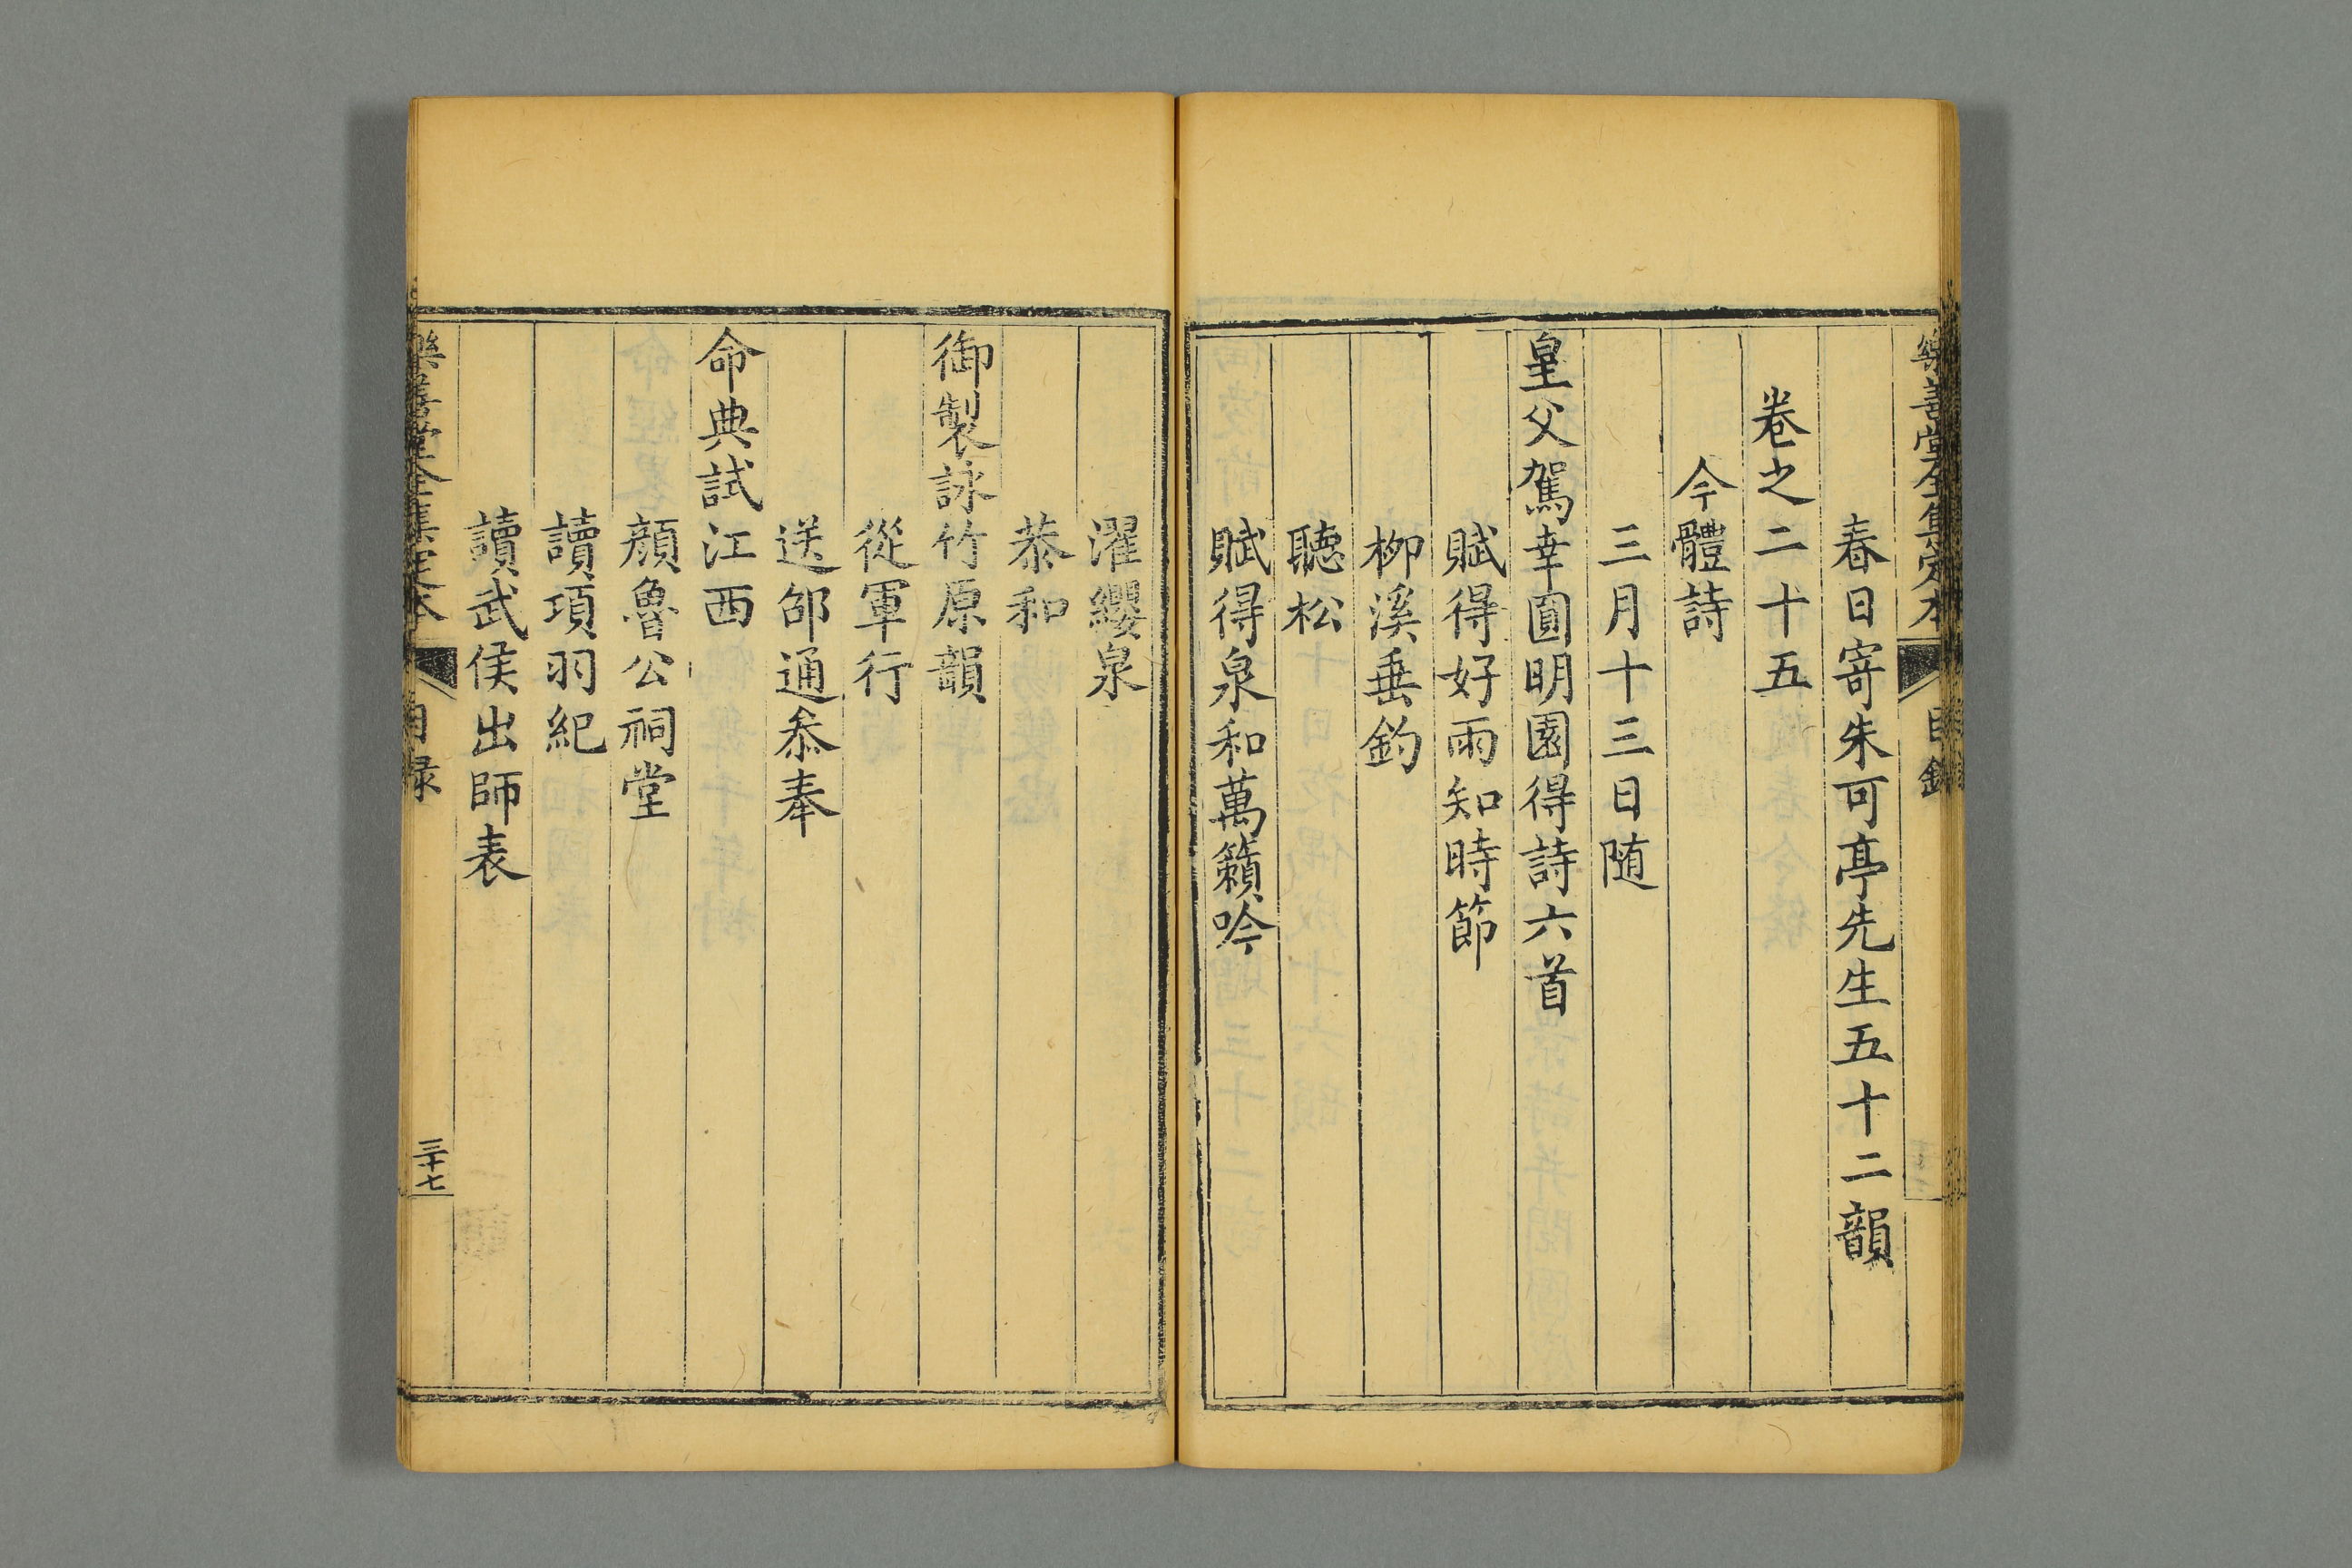 樂善堂全集定本 目錄
春日寄朱可亭先生五十二韻
卷之二十五
今體詩
三月十三日随
皇父駕幸圓明園得詩六首
賦得好雨知時節
柳溪垂釣
聽松
賦得泉和萬籟吟
濯纓泉
恭和
御製詠竹原韻
從軍行
送邵通叅奉
命典試江西
顏魯公祠堂
讀項羽紀
讀武侯出師表
樂善堂全集定本 目録 三十七